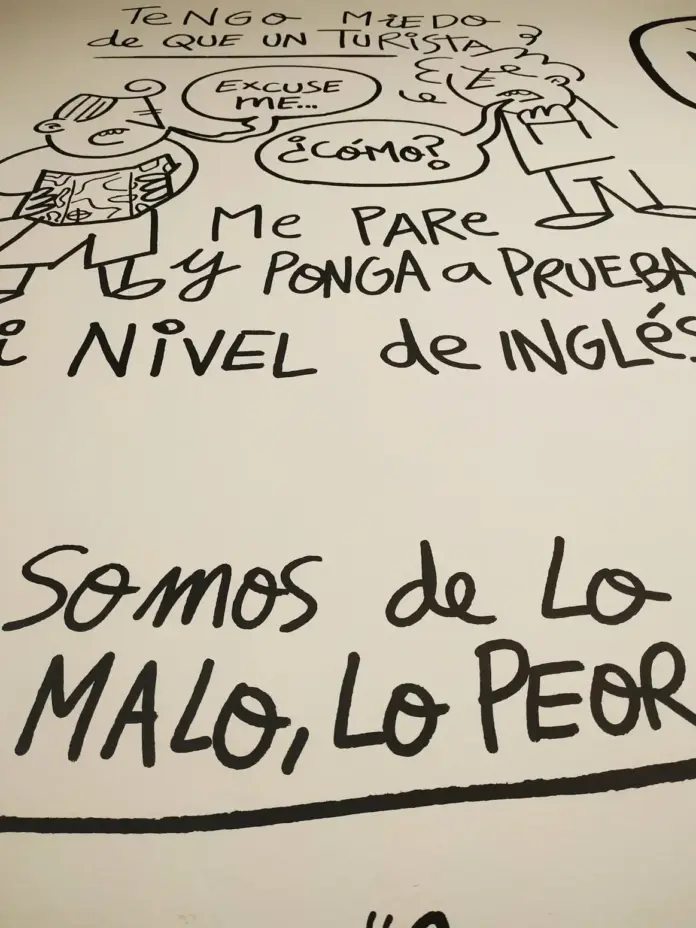 TeNGO MiEDO
de QUE UN TURISTA
EXCUSE
ME...
¿CÓMO?
Me PARe
y PONGA a PRUEBA
i NiVEL de INGLÉS
SOMOS de LO
MALO, LO PEOR